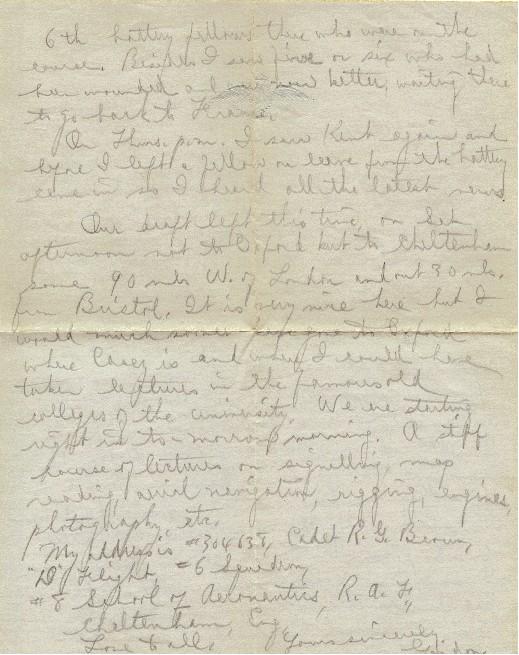 6th battery fellows there who were on the
course. Besides I saw five or six who had
been wounded and now better, waiting there
to go back to France.
On Thurs. p.m. I saw Kent again and
before I left a fellow on leave from the battery
came in so I heard all the latest news.
Our draft left this time, on Sat.
afternoon not to Oxford but to Cheltenham
some 90 mls W. of London and out 30 mls.
from Bristol. It is very nice here but I
would much sooner have gone to Oxford
where Casey is and where I could have
taken lectures in the famous old
colleges of the university. We are starting
right in to-morrow morning. A stiff
course of lectures on signelling, map
reading, aerial navigation, rigging, engines,
photography, etc.
My address is #304638, Cadet R. G. Brown,
"D" Flight, #6 Squadron,
#8 School of Aeronautics, R. A. F,
Cheltenham, Eng.
Love to all. Yours sincerely,
Gordon